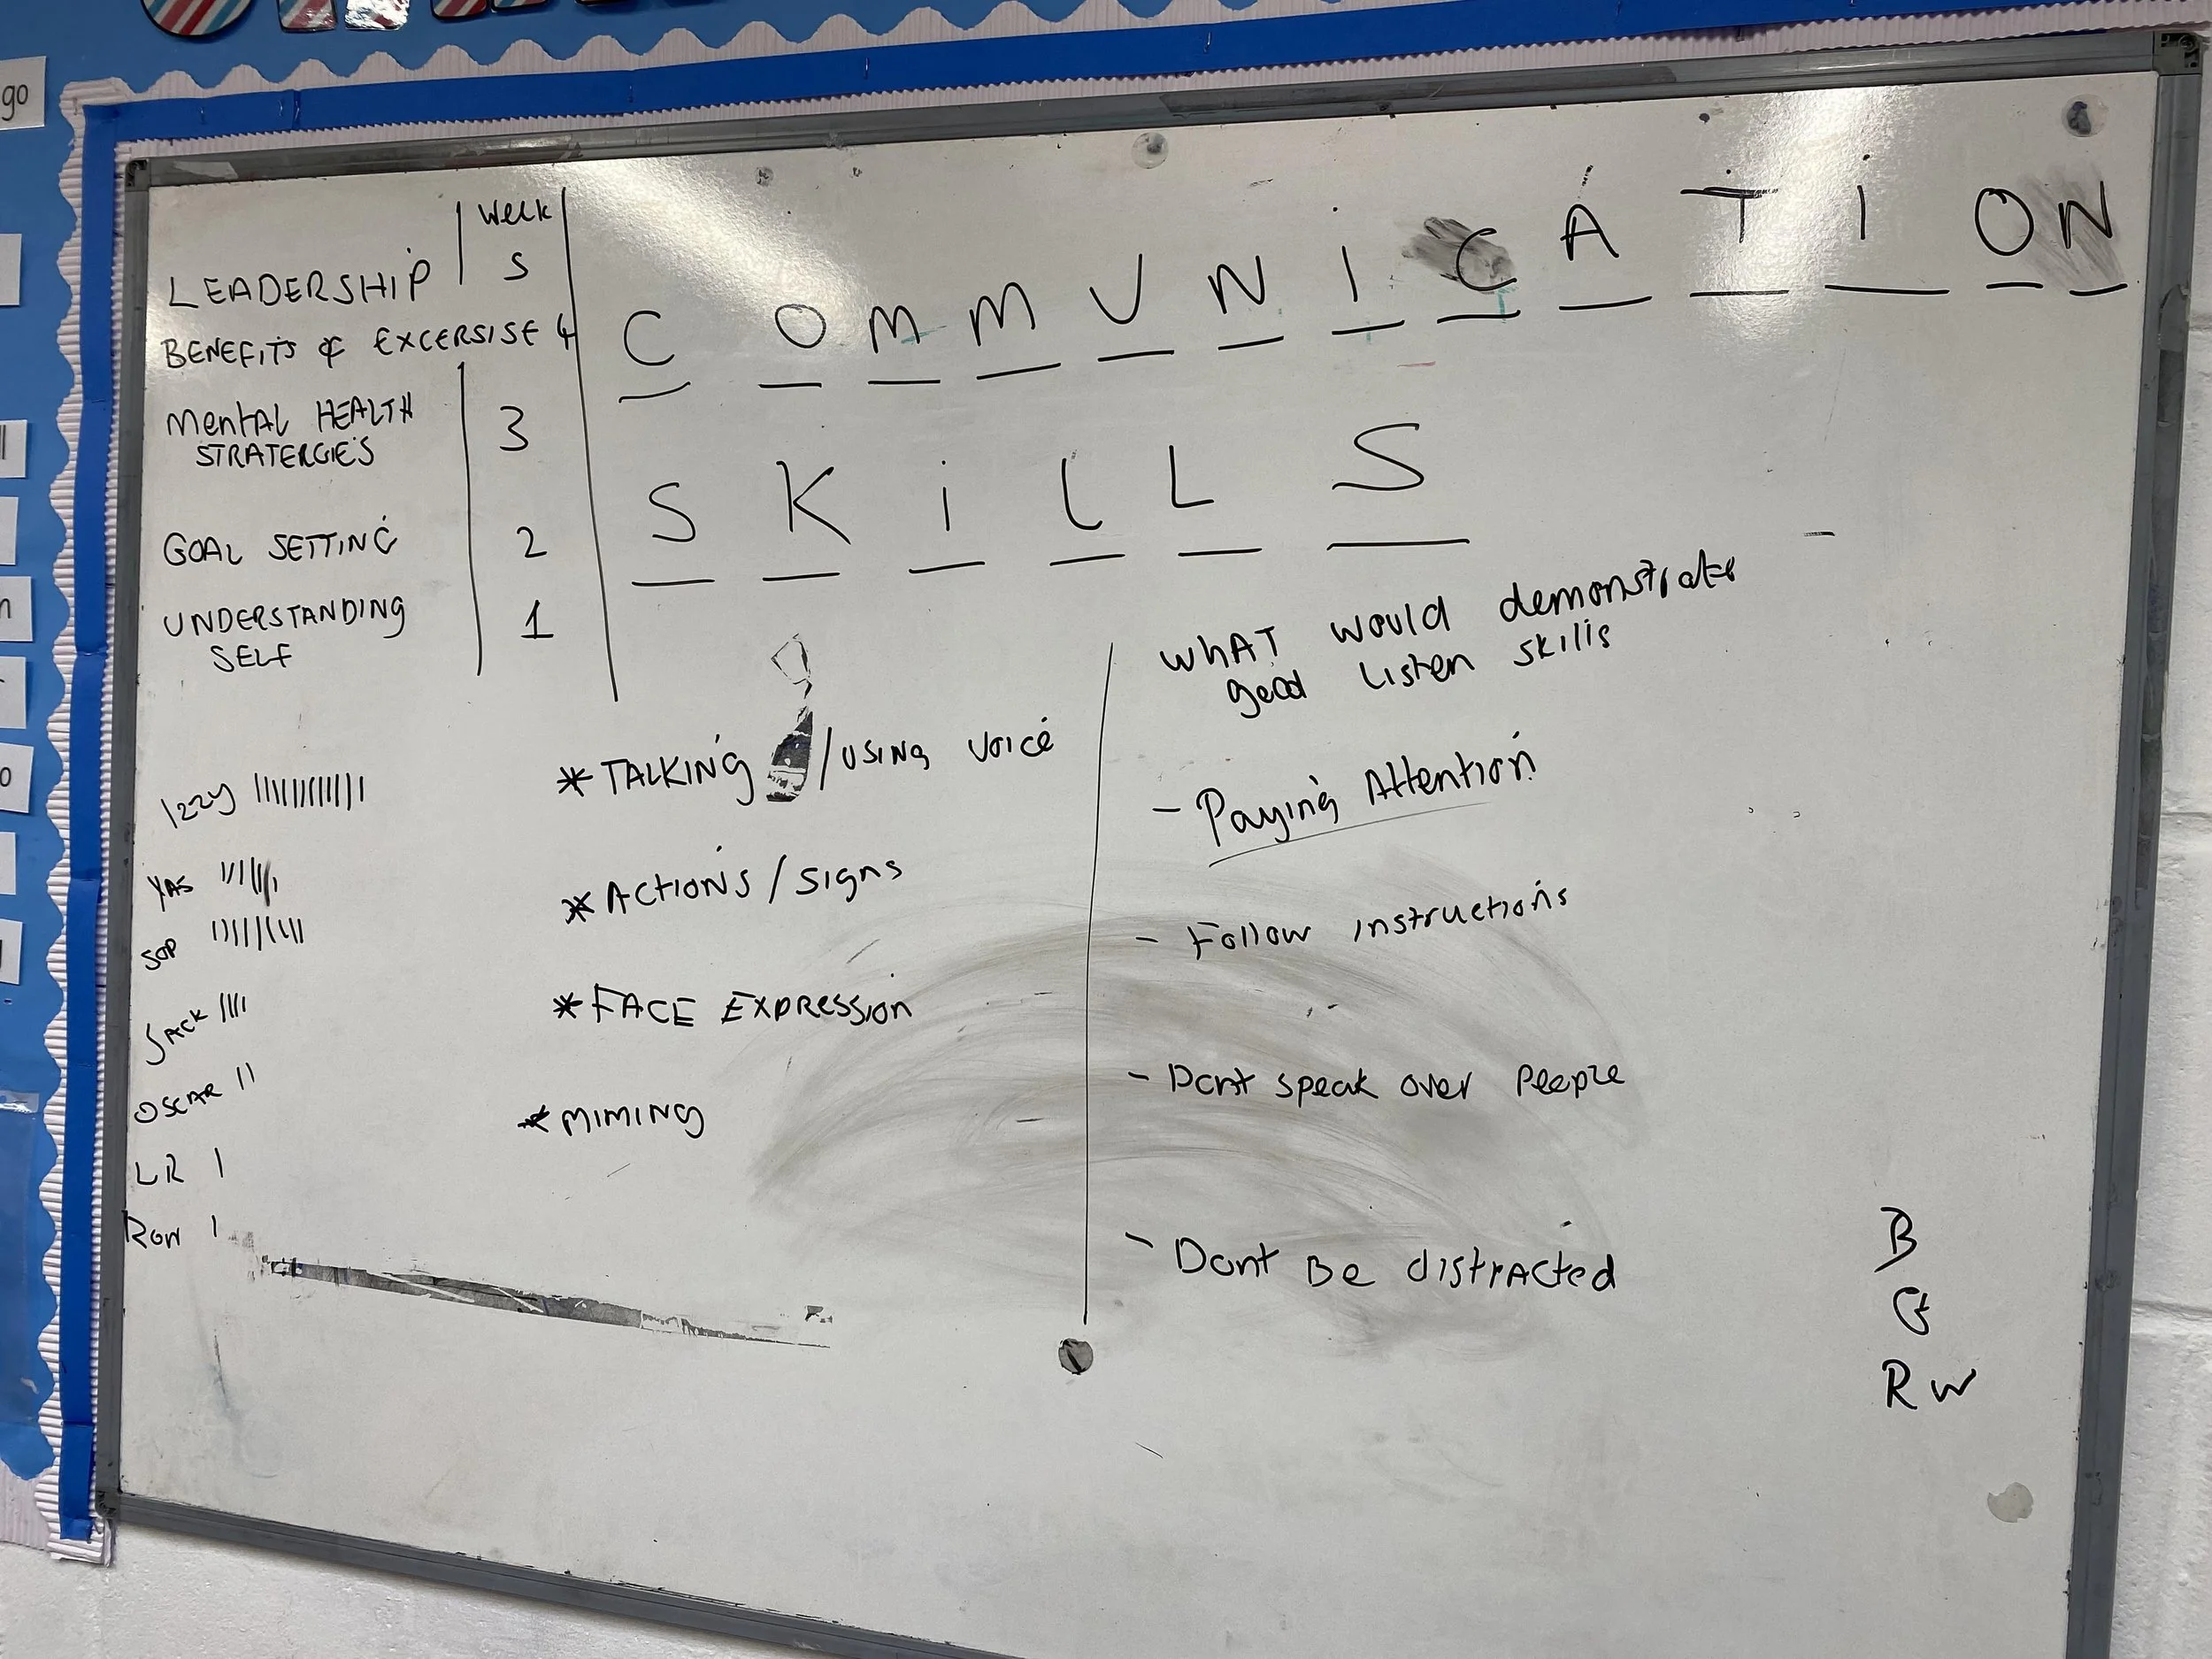 go
Week
LEADERSHIP 5
BENEFITS of EXCERSISE 4
Mental HEALTH 3
STRATERGIES
GOAL SETTING 2
UNDERSTANDING 1
SELF
COMMUNICATION
SKiLLS
Izzy
YAS
SOP
JACK
OSCAR
LR
Row
* TALKING / USING voice
* ACTIONS / Signs
* FACE EXPRESSion
* MIMING
WhAT would demonstrate
good Listen skills
- Paying Attention
- Follow instructions
- Dont speak over People
- Dont Be distracted
B
G
RW